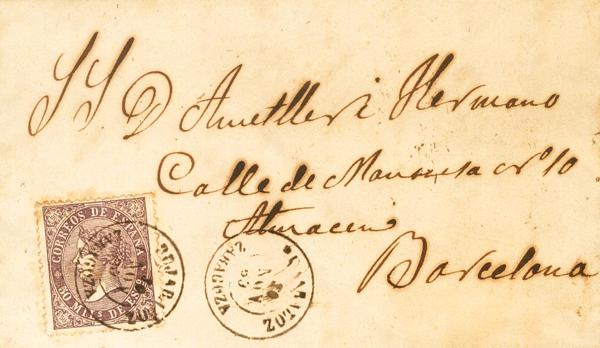 S S D Ametller i Hermano
Calle de Manresa nº 10
Almacen
Barcelona
CORREOS DE ESPAÑA
50 MILS DE ES
BUJARALOZ
ZARAGOZA
BUJARALOZ
NOV
ZARAGOZA